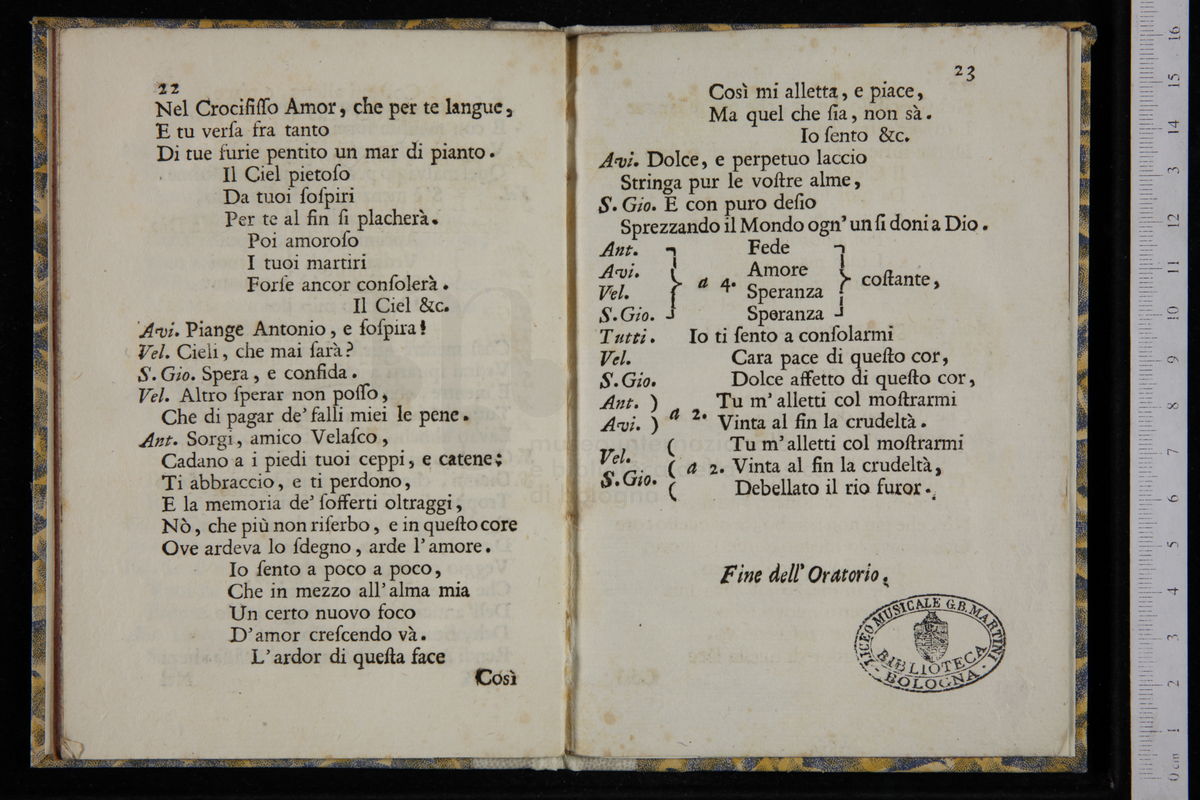 22
Nel Crocifiſſo Amor, che per te langue,
E tu verſa fra tanto
Di tue furie pentito un mar di pianto.
Il Ciel pietoſo
Da tuoi ſoſpiri
Per te al fin ſi placherà.
Poi amoroſo
I tuoi martiri
Forſe ancor conſolerà.
Il Ciel &c.
Avi. Piange Antonio, e ſoſpira!
Vel. Cieli, che mai ſarà?
S. Gio. Spera, e confida.
Vel. Altro ſperar non poſſo,
Che di pagar de' falli miei le pene.
Ant. Sorgi, amico Velaſco,
Cadano a i piedi tuoi ceppi, e catene;
Ti abbraccio, e ti perdono,
E la memoria de' ſofferti oltraggi,
Nò, che più non riſerbo, e in queſto core
Ove ardeva lo ſdegno, arde l'amore.
Io ſento a poco a poco,
Che in mezzo all'alma mia
Un certo nuovo foco
D'amor creſcendo và.
L'ardor di queſta face
Così
23
Così mi alletta, e piace,
Ma quel che ſia, non sà.
Io ſento &c.
Avi. Dolce, e perpetuo laccio
Stringa pur le voſtre alme,
S. Gio. E con puro deſio
Sprezzando il Mondo ogn'un ſi doni a Dio.
Ant. Fede
Avi. Amore
a 4. coſtante,
Vel. Speranza
S. Gio. Speranza
Tutti. Io ti ſento a conſolarmi
Vel. Cara pace di queſto cor,
S. Gio. Dolce affetto di queſto cor,
Ant. ) Tu m'alletti col moſtrarmi
a 2.
Avi. ) Vinta al fin la crudeltà.
( Tu m'alletti col moſtrarmi
Vel.
( a 2. Vinta al fin la crudeltà,
S. Gio.
( Debellato il rio furor.
Fine dell' Oratorio.
LICEO MUSICALE G.B. MARTINI
BIBLIOTECA
- BOLOGNA -
museo internazionale
e biblioteca
di bologna
0 cm 1 2 3 4 5 6 7 8 9 10 11 12 13 14 15 16